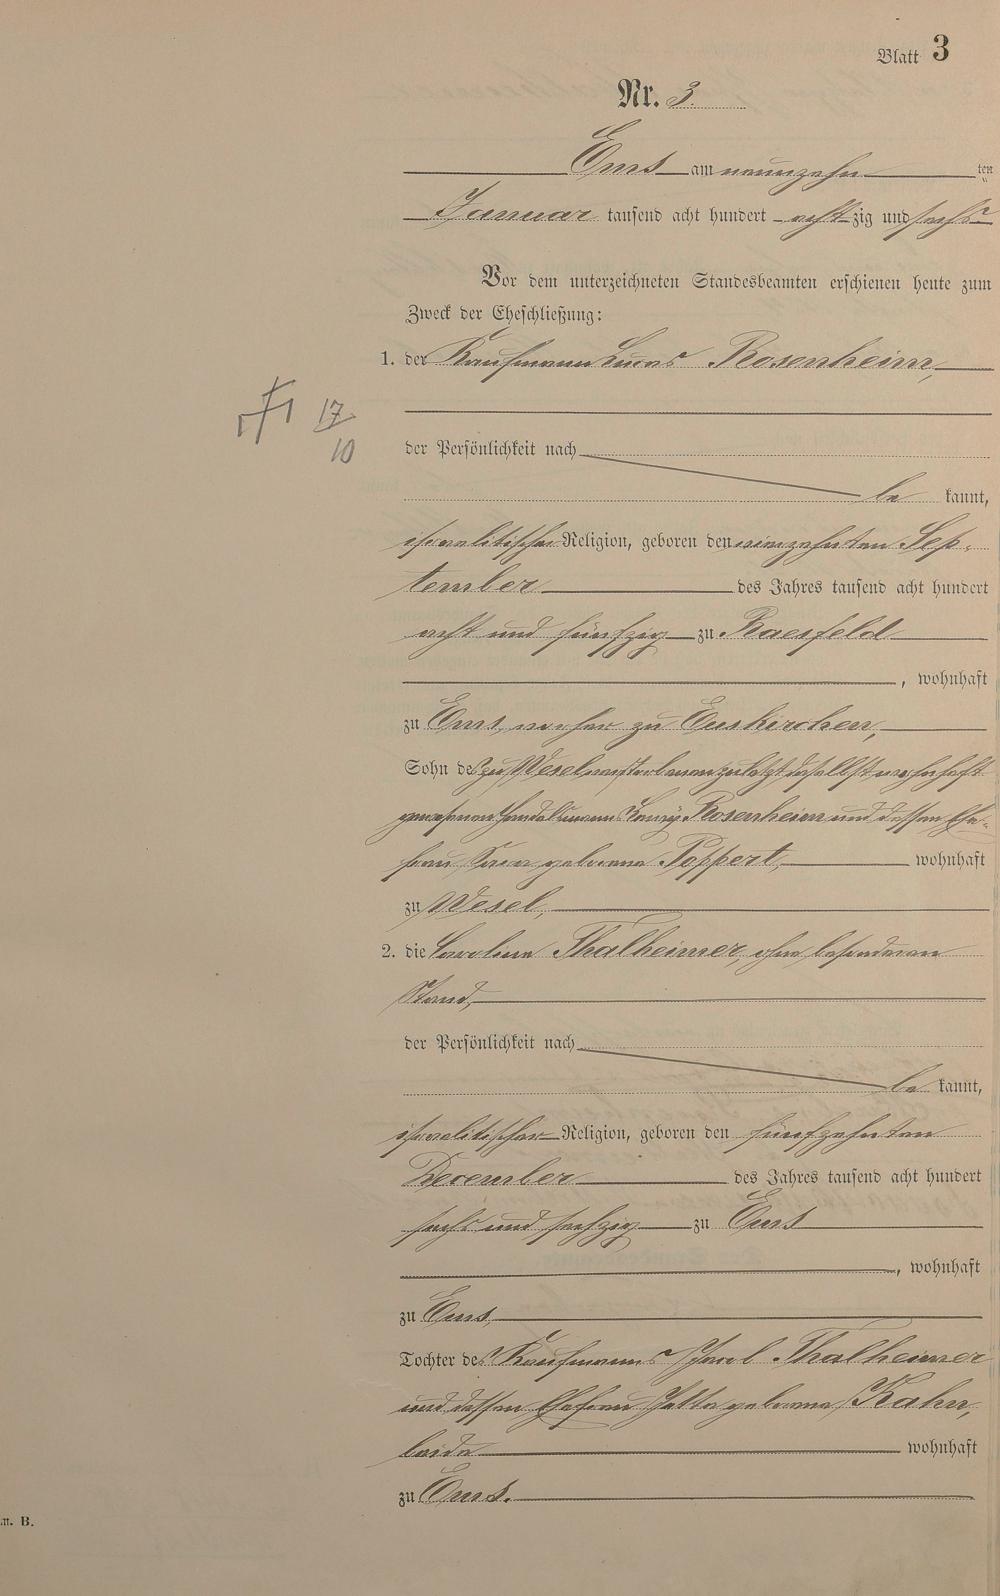 Blatt 3
Nr. 3.
Ems am neunzehn ten
Januar tausend acht hundert achtzig und sechs
Vor dem unterzeichneten Standesbeamten erschienen heute zum
Zweck der Eheschließung:
1. der Kaufmann Lucas Rosenheim,
17
10
der Persönlichkeit nach
be kannt,
israelitischer Religion, geboren den vierzehnten Sep-
tember des Jahres tausend acht hundert
acht und fünfzig zu Raesfeld
, wohnhaft
zu Ems, vorher zu Euskirchen,
Sohn des zu Wesel verstorbenen zuletzt daselbst wohnhaft
gewesenen Handelsmanns Rosenheim und dessen Ehe-
frau Sara geborene Poppert, wohnhaft
zu Wesel,
2. die Caroline Thalheimer, ohne besonderen
Stand,
der Persönlichkeit nach
be kannt,
israelitischer Religion, geboren den fünfzehnten
December des Jahres tausend acht hundert
sechs und sechzig zu Ems
, wohnhaft
zu Ems,
Tochter des Kaufmanns Israel Thalheimer
und dessen Ehefrau Jette geborene Kahn,
beide wohnhaft
zu Ems.
m. B.